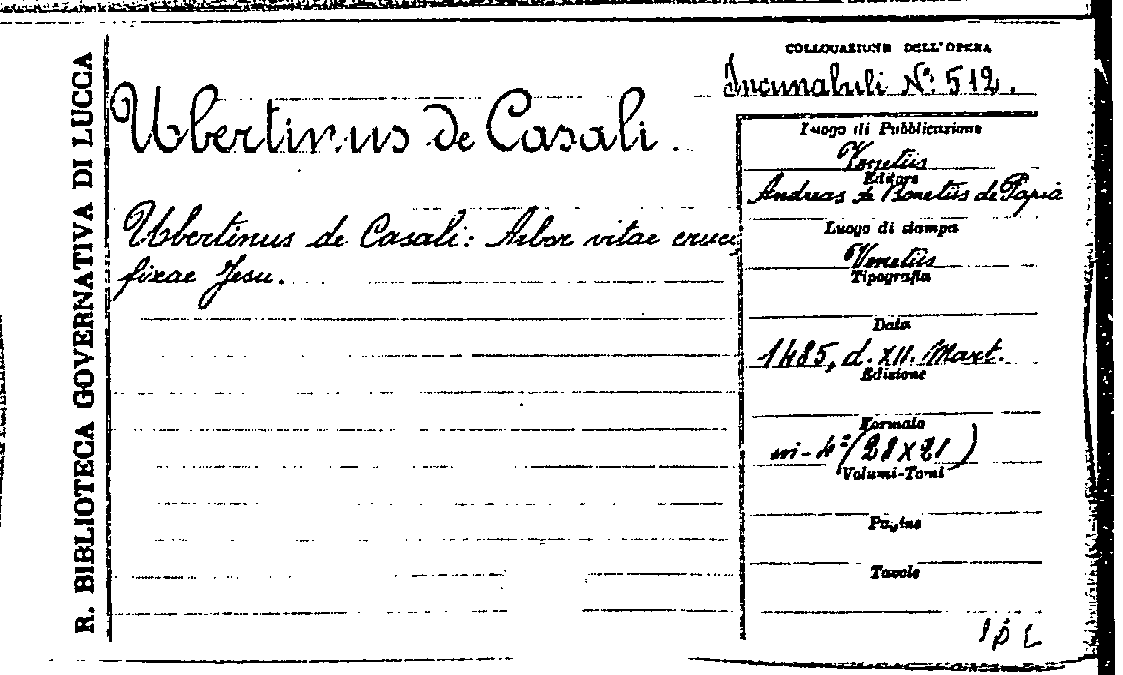 R. BIBLIOTECA GOVERNATIVA DI LUCCA
COLLOCAZIONE DELL'OPERA
Incunabuli N.º 512.
Ubertinus de Casali.
Ubertinus de Casali: Arbor vitae cruci,
fixae Jesu.
Luogo di Pubblicazione
Venetiis
Editore
Andreas de Bonetiis de Papia
Luogo di stampa
Venetiis
Tipografia
Data
1485, d. XII. Mart.
Edizione
Formato
in-4º (28 X 21)
Volumi-Tomi
Pagine
Tavole